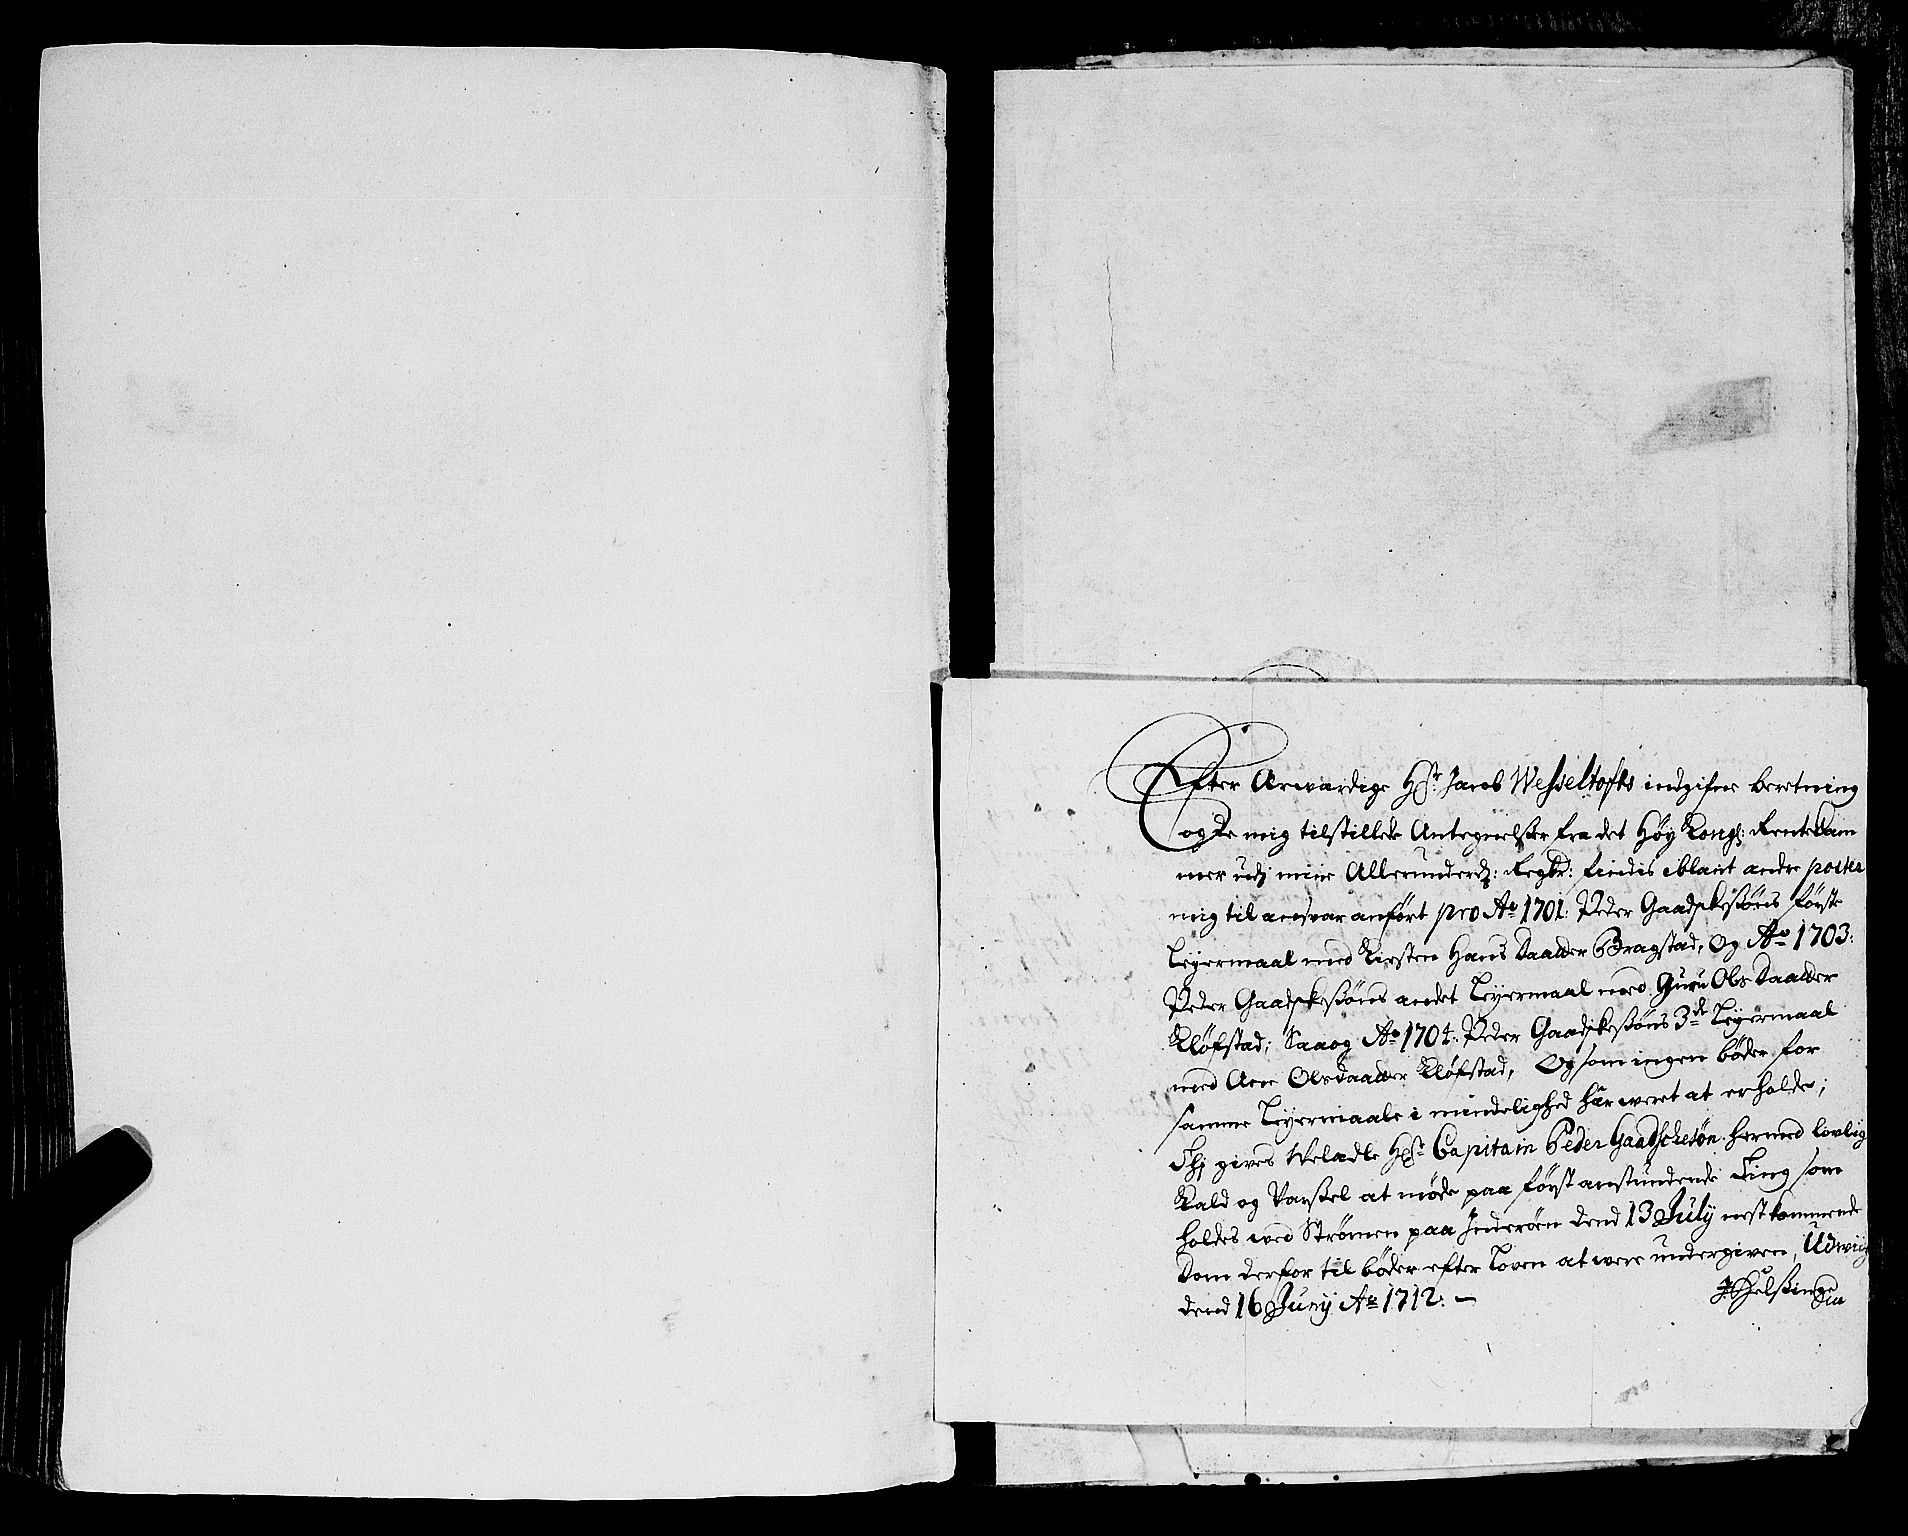 Efter Ærwærdige Hr: Jacob Wesseltofts indgifne beretning
og de mig tilstillede Antegnelser fra det Høy Kongl: Rentekam
mer udj mine Allerunderd: Regbr: findis iblant andre poster
mig til ansvar anført pro Ao 1701: Peder Gaadskesøns første
Leyermaal med Kirsten Hans Daatter Bragstad, Og Ao 1703:
Peder Gaadskesøns andet Leyermaal med Guru Ols Daatter
Kløfstad; Saa og Ao 1704: Peder Gaadskesøns 3de Leyermaal
med Ane Olsdaatter Kløfstad, Og som ingen bøder for
samme Leyermaale i mindelighed har weret at erholde;
Thj gives Welædle Hr: Capitain Peder Gaadschesøn hermed lovlig
Kald og Varssel at møde paa først anstundende Ting som
holdes wed Strømen paa Inderøen dend 13 July nestkommende
Dom derfor til bøder efter Loven at were undergiven, Udwiig
dend 16 Junij Ao 1712: —